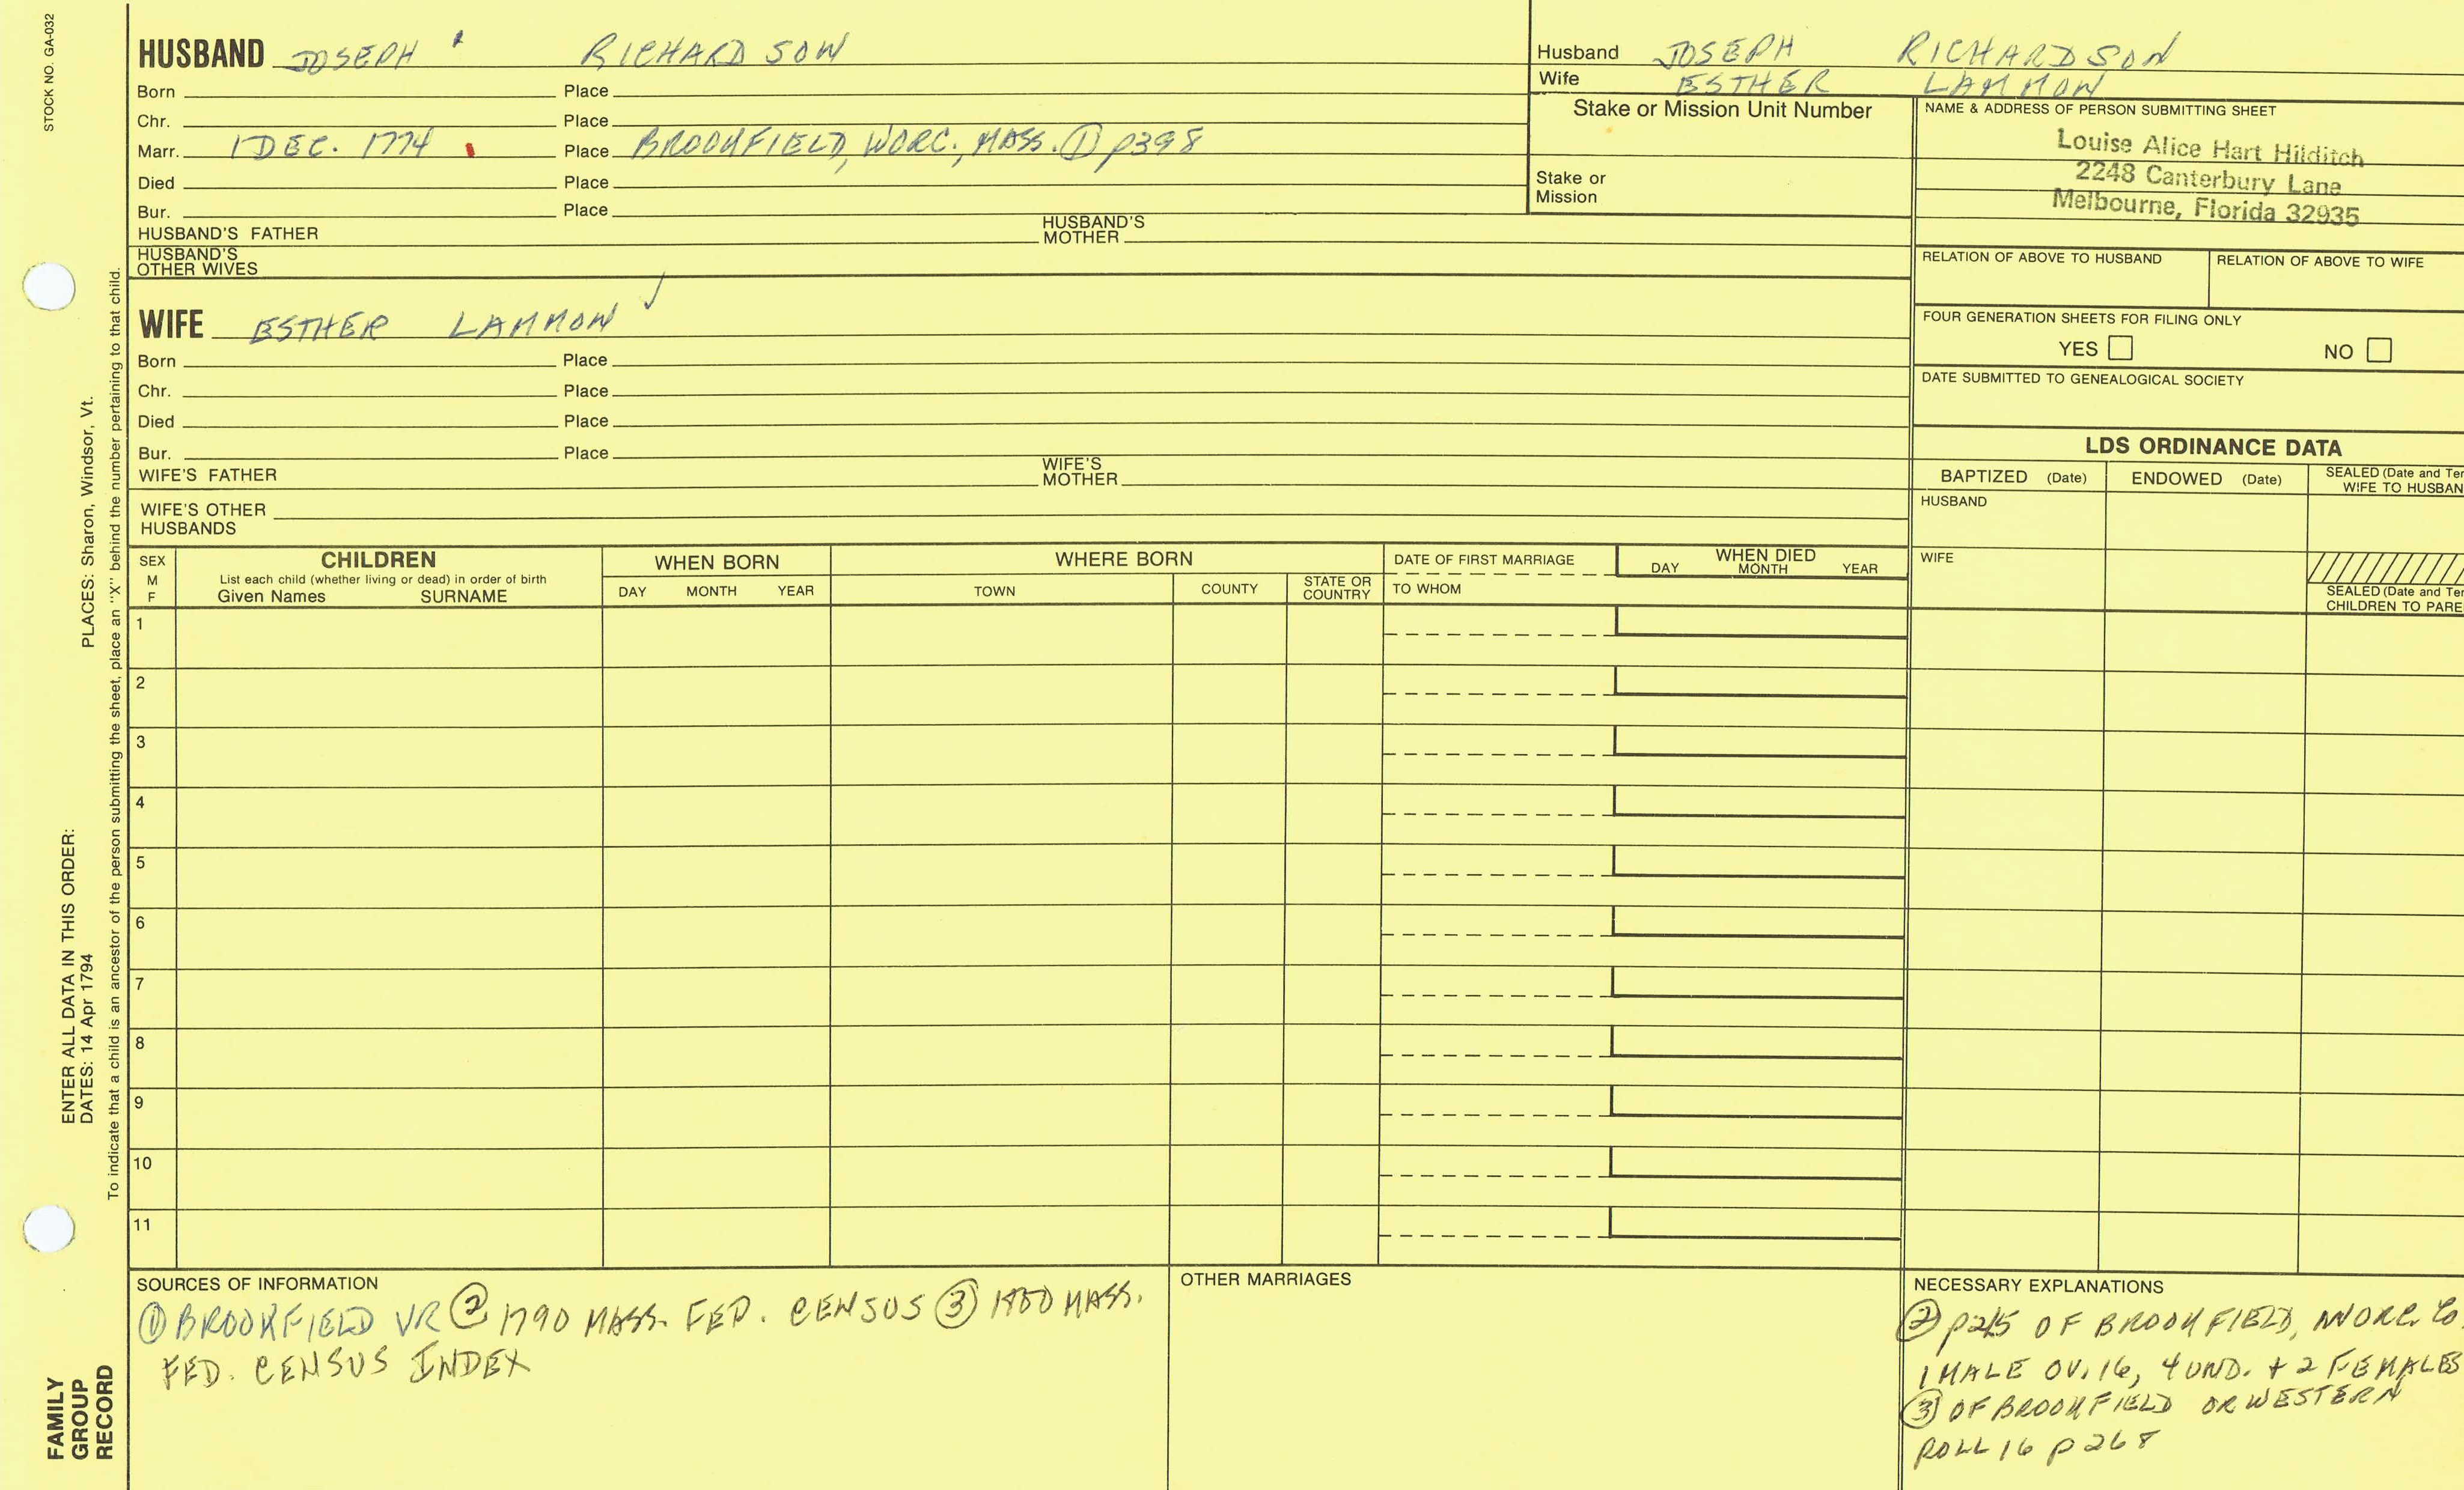 STOCK NO. GA-032
HUSBAND JOSEPH RICHARDSON
Born Place
Chr. Place
Marr. 1 DEC. 1774 Place BROOKFIELD, WORC., MASS. ① p398
Died Place
Bur. Place
HUSBAND'S FATHER HUSBAND'S MOTHER
HUSBAND'S
OTHER WIVES
WIFE ESTHER LAMMON
Born Place
Chr. Place
Died Place
Bur. Place
WIFE'S FATHER WIFE'S MOTHER
WIFE'S OTHER
HUSBANDS
Husband JOSEPH RICHARDSON
Wife ESTHER LAMMON
Stake or Mission Unit Number
Stake or
Mission
NAME & ADDRESS OF PERSON SUBMITTING SHEET
Louise Alice Hart Hilditch
2248 Canterbury Lane
Melbourne, Florida 32935
RELATION OF ABOVE TO HUSBAND RELATION OF ABOVE TO WIFE
FOUR GENERATION SHEETS FOR FILING ONLY
YES NO
DATE SUBMITTED TO GENEALOGICAL SOCIETY
LDS ORDINANCE DATA
BAPTIZED (Date) ENDOWED (Date) SEALED (Date and Tem
WIFE TO HUSBAN
HUSBAND
WIFE
SEALED (Date and Tem
CHILDREN TO PARE
SEX
M
F
CHILDREN
List each child (whether living or dead) in order of birth
Given Names SURNAME
WHEN BORN
DAY MONTH YEAR
WHERE BORN
TOWN COUNTY STATE OR COUNTRY
DATE OF FIRST MARRIAGE
TO WHOM
WHEN DIED
DAY MONTH YEAR
1
2
3
4
5
6
7
8
9
10
11
SOURCES OF INFORMATION
① BROOKFIELD VR ② 1790 MASS. FED. CENSUS ③ 1800 MASS.
FED. CENSUS INDEX
OTHER MARRIAGES
NECESSARY EXPLANATIONS
② p215 OF BROOKFIELD, WORC. CO.
1 MALE OV. 16, 4 UND. + 2 FEMALES
③ OF BROOKFIELD OR WESTERN
ROLL 16 p 268
PLACES: Sharon, Windsor, Vt.
ENTER ALL DATA IN THIS ORDER:
DATES: 14 Apr 1794
To indicate that a child is an ancestor of the person submitting the sheet, place an "X" behind the number pertaining to that child.
FAMILY
GROUP
RECORD